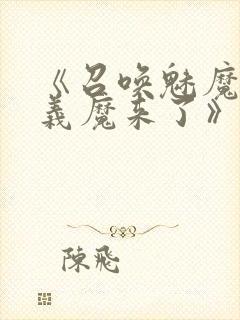 《召唤魅魔
義魔来了》
陳飛